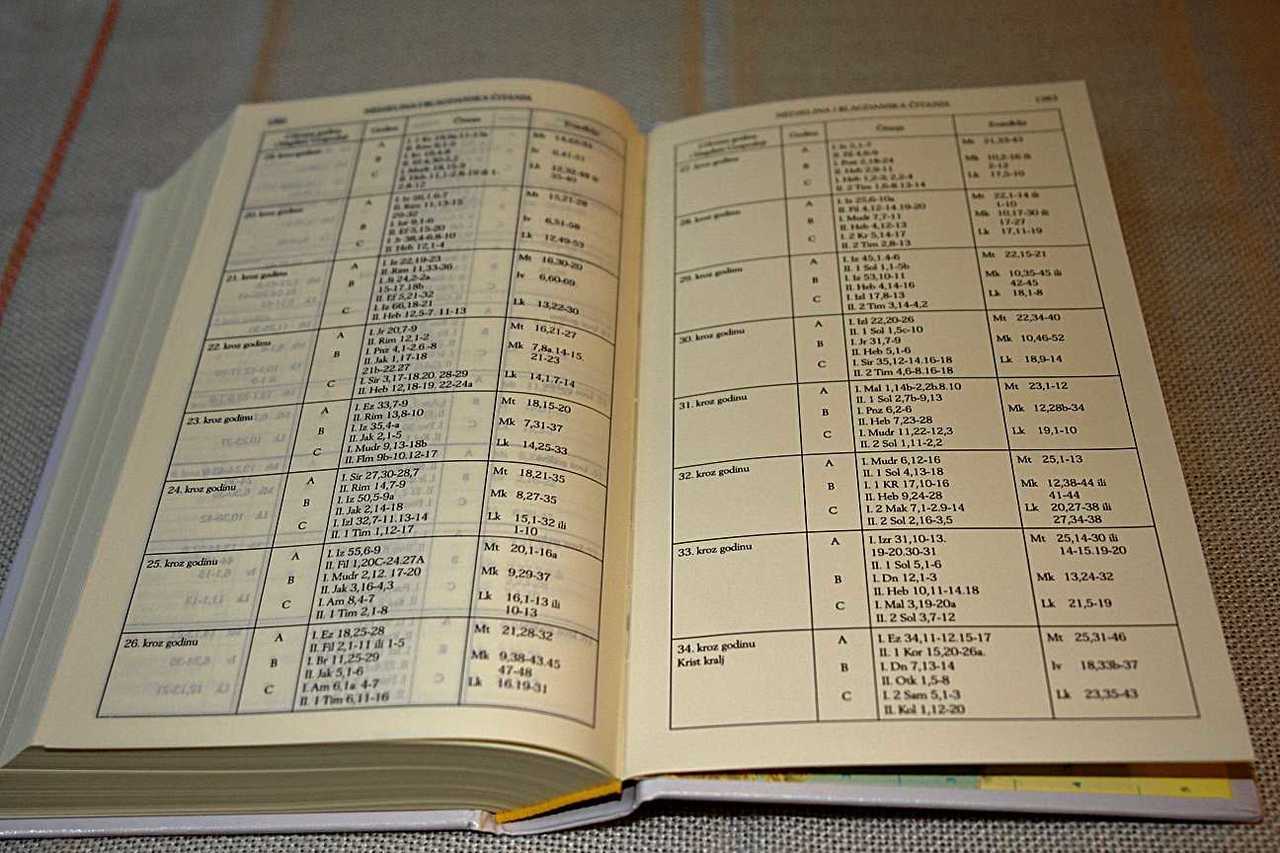 NEDJELJNA I BLAGDANSKA ČITANJA
19. kroz godinu
A
B
C
20. kroz godinu
A
I. Iz 56,1.6-7
II. Rim 11,13-15
29-32
Mt 15,21-28
B
I. Izr 9,1-6
II. Ef 5,15-20
Iv 6,51-58
C
I. Jr 38,4-6.8-10
II. Heb 12,1-4
Lk 12,49-53
21. kroz godinu
A
I. Iz 22,19-23
II. Rim 11,33-36
Mt 16,20-20
B
I. Jš 24,2-2a
15-17.18b
II. Ef 5,21-32
Iv 6,60-69
C
I. Iz 66,18-21
II. Heb 12,5-7. 11-13
Lk 13,22-30
22. kroz godinu
A
I. Jr 20,7-9
II. Rim 12,1-2
Mt 16,21-27
B
I. Pnz 4,1-2.6.-8
II. Jak 1,17-18
21b-22.27
Mk 7,8a.14-15.
21-23
C
I. Sir 3,17-18.20. 28-29
II. Heb 12,18-19. 22-24a
Lk 14,1.7-14
23. kroz godinu
A
I. Ez 33,7-9
II. Rim 13,8-10
Mt 18,15-20
B
I. Iz 35,4-a
II. Jak 2,1-5
Mk 7,31-37
C
I. Mudr 9,13-18b
II. Flm 9b-10.12-17
Lk 14,25-33
24. kroz godinu
A
I. Sir 27,30-28,7
II. Rim 14,7-9
Mt 18,21-35
B
I. Iz 50,5-9a
II. Jak 2,14-18
Mk 8,27-35
C
I. Izl 32,7-11.13-14
II. 1 Tim 1,12-17
Lk 15,1-32 ili
1-10
25. kroz godinu
A
I. Iz 55,6-9
II. Fil 1,20C-24.27A
Mt 20,1-16a
B
I. Mudr 2,12. 17-20
II. Jak 3,16-4,3
Mk 9,29-37
C
I. Am 8,4-7
II. 1 Tim 2,1-8
Lk 16,1-13 ili
10-13
26. kroz godinu
A
I. Ez 18,25-28
II. Fil 2,1-11 ili 1-5
Mt 21,28-32
B
I. Br 11,25-29
II. Jak 5,1-6
Mk 9,38-43.45
47-48
C
I. Am 6,1a 4-7
II. 1 Tim 6,11-16
Lk 16.19-31
NEDJELJNA I BLAGDANSKA ČITANJA
Godina
Čitanja
Evanđelje
27. kroz godinu
A
I. Iz 5,1-7
II. Fil 4,6-9
Mt 21,33-43
B
I. Pnz 2,18-24
II. Heb 2,9-11
Mk 10,2-16 ili
2-12
C
I. Heb 1,2-3; 2,2-4
II. 2 Tim 1,6-8.13-14
Lk 17,5-10
28. kroz godinu
A
I. Iz 25,6-10a
II. Fil 4,12-14.19-20
Mt 22,1-14 ili
1-10
B
I. Mudr 7,7-11
II. Heb 4,12-13
Mk 10,17-30 ili
17-27
C
I. 2 Kr 5,14-17
II. 2 Tim 2,8-13
Lk 17,11-19
29. kroz godinu
A
I. Iz 45,1.4-6
II. 1 Sol 1,1-5b
Mt 22,15-21
B
I. Iz 53,10-11
II. Heb 4,14-16
Mk 10,35-45 ili
42-45
C
I. Izl 17,8-13
II. 2 Tim 3,14-4,2
Lk 18,1-8
30. kroz godinu
A
I. Izl 22,20-26
II. 1 Sol 1,5c-10
Mt 22,34-40
B
I. Jr 31,7-9
II. Heb 5,1-6
Mk 10,46-52
C
I. Sir 35,12-14.16-18
II. 2 Tim 4,6-8.16-18
Lk 18,9-14
31. kroz godinu
A
I. Mal 1,14b-2,2b.8.10
II. 1 Sol 2,7b-9,13
Mt 23,1-12
B
I. Pnz 6,2-6
II. Heb 7,23-28
Mk 12,28b-34
C
I. Mudr 11,22-12,3
II. 2 Sol 1,11-2,2
Lk 19,1-10
32. kroz godinu
A
I. Mudr 6,12-16
II. 1 Sol 4,13-18
Mt 25,1-13
B
I. 1 KR 17,10-16
II. Heb 9,24-28
Mk 12,38-44 ili
41-44
C
I. 2 Mak 7,1-2.9-14
II. 2 Sol 2,16-3,5
Lk 20,27-38 ili
27,34-38
33. kroz godinu
A
I. Izr 31,10-13.
19-20.30-31
II. 1 Sol 5,1-6
Mt 25,14-30 ili
14-15.19-20
B
I. Dn 12,1-3
II. Heb 10,11-14.18
Mk 13,24-32
C
I. Mal 3,19-20a
II. 2 Sol 3,7-12
Lk 21,5-19
34. kroz godinu
Krist kralj
A
I. Ez 34,11-12.15-17
II. 1 Kor 15,20-26a.
Mt 25,31-46
B
I. Dn 7,13-14
II. Otk 1,5-8
Iv 18,33b-37
C
I. 2 Sam 5,1-3
II. Kol 1,12-20
Lk 23,35-43